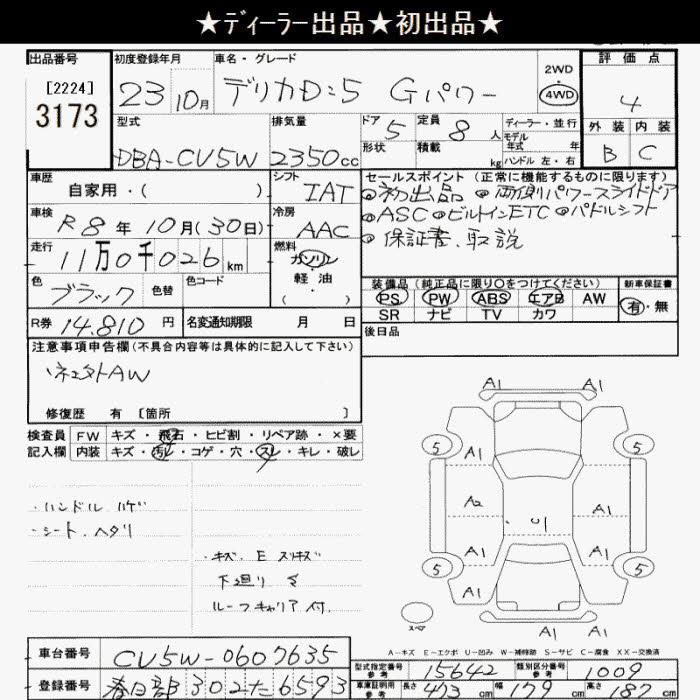 ★ディーラー出品★初出品★
出品番号
[2224]
3173
初度登録年月
23 10月
車名・グレード
デリカD:5 Gパワー
2WD
4WD
評価点
4
外装 内装
B C
型式
DBA-CV5W
排気量
2350cc
ドア
5
形状
定員
8人
積載
kg
ディーラー・並行
モデル
年式 年
ハンドル 左・右
車歴
自家用・( )
シフト
IAT
車検
R8年10月(30日)
冷房
AAC
走行
11万0千026km
燃料
ガソリン
軽油
( )
色
ブラック
色替
色コード
R券 14.810円
名変通知期限 月 日
セールスポイント (正常に機能するものに限ります)
◎初出品 ◎両側パワースライドドア
◎ASC ◎ビルトインETC ◎パドルシフト
◎保証書、取説
装備品 (純正品に限り○をつけてください)
PS PW ABS エアB AW
SR ナビ TV カワ
新車保証書
有・無
後日品
注意事項申告欄 (不具合内容等は具体的に記入して下さい)
AW
修復歴 有 〔箇所 〕
検査員
記入欄
FW キズ・飛石・ヒビ割・リペア跡・×要
内装 キズ・汚れ・コゲ・穴・スレ・キレ・破レ
・ハンドル ハゲ
・シート ヘタリ
・キズ E スリキズ
下廻り サ
ルーフキャリア付.
A1 A1
5 5
A1
A2 A1
U1
A1 A1
5 5
A1 A1
スペア
A1 A1
A-キズ E-エクボ U-凹み W-補修跡 S-サビ C-腐食 XX-交換済
車台番号
CV5W-0607635
登録番号
春日部302た6593
型式指定番号
参考
15642
類別区分番号
参考
1009
車庫証明用
参考
長さ 473cm 幅 179cm 高さ 187cm